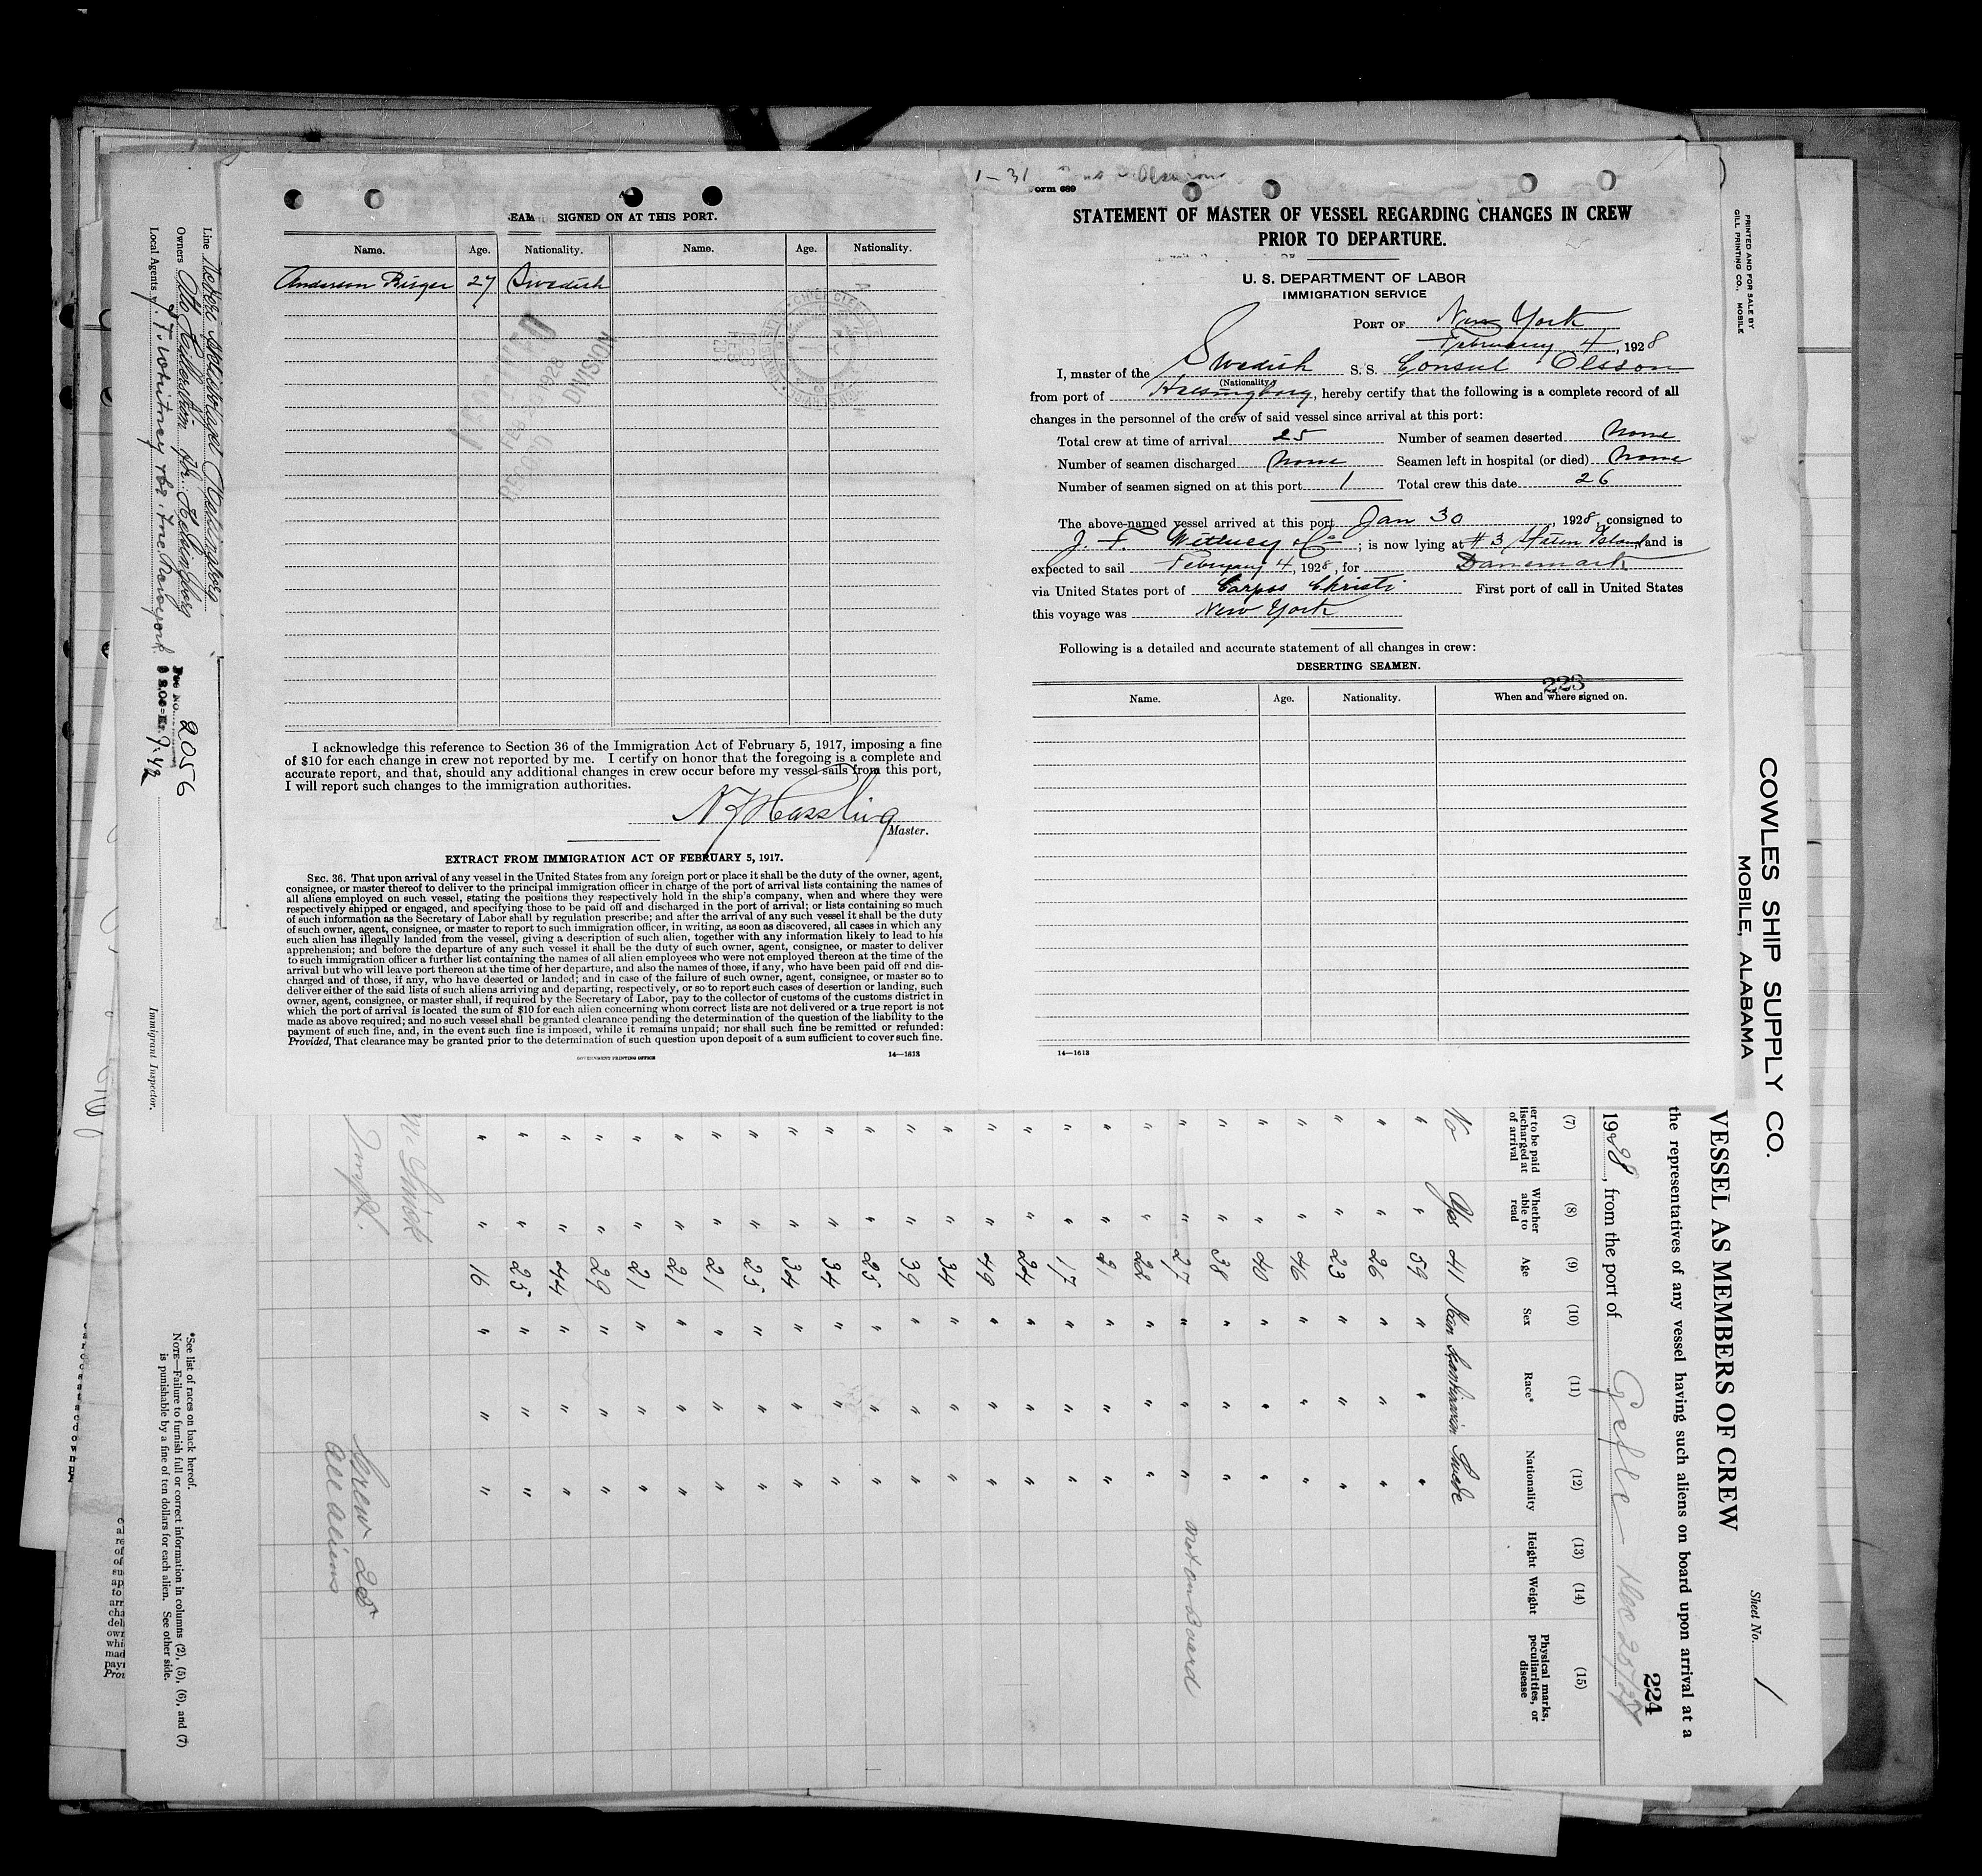 SIGNED ON AT THIS PORT.
Name. Age. Nationality. Name. Age. Nationality.
Anderson Birger 27 Swedish
FEB 1928
RECORD DIVISION
I acknowledge this reference to Section 36 of the Immigration Act of February 5, 1917, imposing a fine
of $10 for each change in crew not reported by me. I certify on honor that the foregoing is a complete and
accurate report, and that, should any additional changes in crew occur before my vessel sails from this port,
I will report such changes to the immigration authorities.
Master.
EXTRACT FROM IMMIGRATION ACT OF FEBRUARY 5, 1917.
SEC. 36. That upon arrival of any vessel in the United States from any foreign port or place it shall be the duty of the owner, agent,
consignee, or master thereof to deliver to the principal immigration officer in charge of the port of arrival lists containing the names of
all aliens employed on such vessel, stating the positions they respectively hold in the ship's company, when and where they were
respectively shipped or engaged, and specifying those to be paid off and discharged in the port of arrival; or lists containing so much
of such information as the Secretary of Labor shall by regulation prescribe; and after the arrival of any such vessel it shall be the duty
of such owner, agent, consignee, or master to report to such immigration officer, in writing, as soon as discovered, all cases in which any
such alien has illegally landed from the vessel, giving a description of such alien, together with any information likely to lead to his
apprehension; and before the departure of any such vessel it shall be the duty of such owner, agent, consignee, or master to deliver
to such immigration officer a further list containing the names of all alien employees who were not employed thereon at the time of the
arrival but who will leave port thereon at the time of her departure, and also the names of those, if any, who have been paid off and dis-
charged and of those, if any, who have deserted or landed; and in case of the failure of such owner, agent, consignee, or master so to
deliver either of the said lists of such aliens arriving and departing, respectively, or so to report such cases of desertion or landing, such
owner, agent, consignee, or master shall, if required by the Secretary of Labor, pay to the collector of customs of the customs district in
which the port of arrival is located the sum of $10 for each alien concerning whom correct lists are not delivered or a true report is not
made as above required; and no such vessel shall be granted clearance pending the determination of the question of the liability to the
payment of such fine, and, in the event such fine is imposed, while it remains unpaid; nor shall such fine be remitted or refunded:
Provided, That clearance may be granted prior to the determination of such question upon deposit of a sum sufficient to cover such fine.
GOVERNMENT PRINTING OFFICE 14—1613
1—31
orm 689
STATEMENT OF MASTER OF VESSEL REGARDING CHANGES IN CREW
PRIOR TO DEPARTURE.
U. S. DEPARTMENT OF LABOR
IMMIGRATION SERVICE
PORT OF New York
February 4, 1928
I, master of the Swedish S. S. Consul Olsson
(Nationality)
from port of Helsingborg, hereby certify that the following is a complete record of all
changes in the personnel of the crew of said vessel since arrival at this port:
Total crew at time of arrival 25 Number of seamen deserted None
Number of seamen discharged None Seamen left in hospital (or died) None
Number of seamen signed on at this port 1 Total crew this date 26
The above-named vessel arrived at this port Jan 30, 1928, consigned to
J. F. Witney & Co; is now lying at #3 Staten Island and is
expected to sail February 4, 1928, for Danemark
via United States port of Corpus Christi First port of call in United States
this voyage was New York
Following is a detailed and accurate statement of all changes in crew:
DESERTING SEAMEN.
223
Name. Age. Nationality. When and where signed on.
14—1613
PRINTED AND FOR SALE BY
GILL PRINTING CO., MOBILE
COWLES SHIP SUPPLY CO.
MOBILE, ALABAMA
Sheet No. 1
VESSEL AS MEMBERS OF CREW
the representatives of any vessel having such aliens on board upon arrival at a
224
1928, from the port of Gefle - Dec 28/27
(7) (8) (9) (10) (11) (12) (13) (14) (15)
er to be paid
discharged at
of arrival
Whether able to read
Age
Sex
Race*
Nationality
Height
Weight
Physical marks, peculiarities, or disease
No Yes 41 Man Skandinavian Swede
" " 59 " " "
" " 26 " " "
" " 23 " " "
" " 46 " " "
" " 40 " " "
" " 38 " " "
" " 27 " " " not on Board
" " 22 " " "
" " 21 " " "
" " 17 " " "
" " 24 " " "
" " 49 " " "
" " 34 " " "
" " 39 " " "
" " 25 " " "
" " 34 " " "
" " 34 " " "
" " 25 " " "
" " 21 " " "
" " 21 " " "
" " 21 " " "
" " 29 " " "
" " 44 " " "
" " 25 " " "
" " 16 " " "
Crew 25
All aliens
Line
Owners Otto Hillerström
Local Agents J. F. Whitney
Fee No. 2056
$2.00=Kr. 7.42
Immigrant Inspector.
*See list of races on back hereof.
NOTE—Failure to furnish full or correct information in columns (2), (5), (6), and (7)
is punishable by a fine of ten dollars for each alien. See other side.